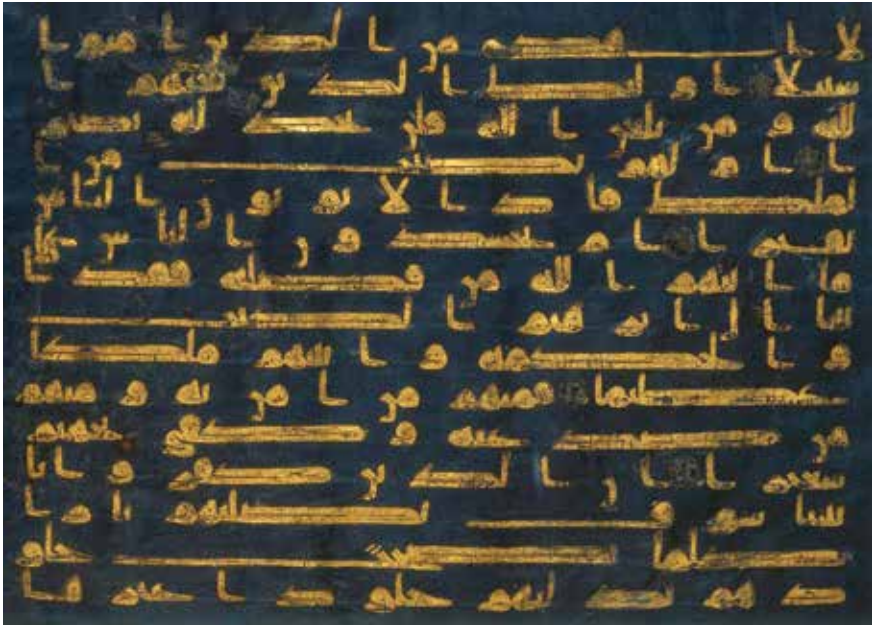 لا اهدى من الذين امنوا
سبيلا اولئك الذين لعنهم ا
لله ومن يلعن الله فلن تجد له نصير
ا ام لهم نصيب من ا
لملك فاذا لا يوتون الناس
نقيرا ام يحسدون الناس على
ما اتيهم الله من فضله فقد ا
تينا ال ابرهيم الكتب
والحكمة واتينهم ملكا
عظيما فمنهم من امن به ومنهم
من صد عنه وكفى بجهنم
سعيرا ان الذين كفروا بايا
تنا سوف نصليهم نارا
كلما نضجت جلو
دهم بدلنهم جلودا غيرها